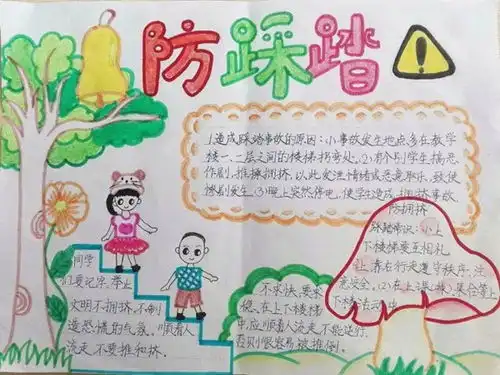 防踩踏
1.造成踩踏事故的原因:小事故发生地点多在教学
楼一、二层之间的楼梯拐弯处。(2)有个别学生搞恶
作剧,推搡拥挤,以此发泄情绪或恶意取乐,致使
惨剧发生。(3)晚上突然停电,使学生造成拥挤事故
防拥挤
踩踏常识:小上
下楼梯要互相礼
让,靠右行走遵守秩序,注
意安全。(2)在上课,集会等上
下楼
同学
们要记牢,举止
文明不拥挤,不制
造恐慌的气氛,顺着人
流走,不要推和挤.
不求快,要求
稳,在上下楼梯
中,应顺着人流走,不能逆行,
否则很容易被推倒。